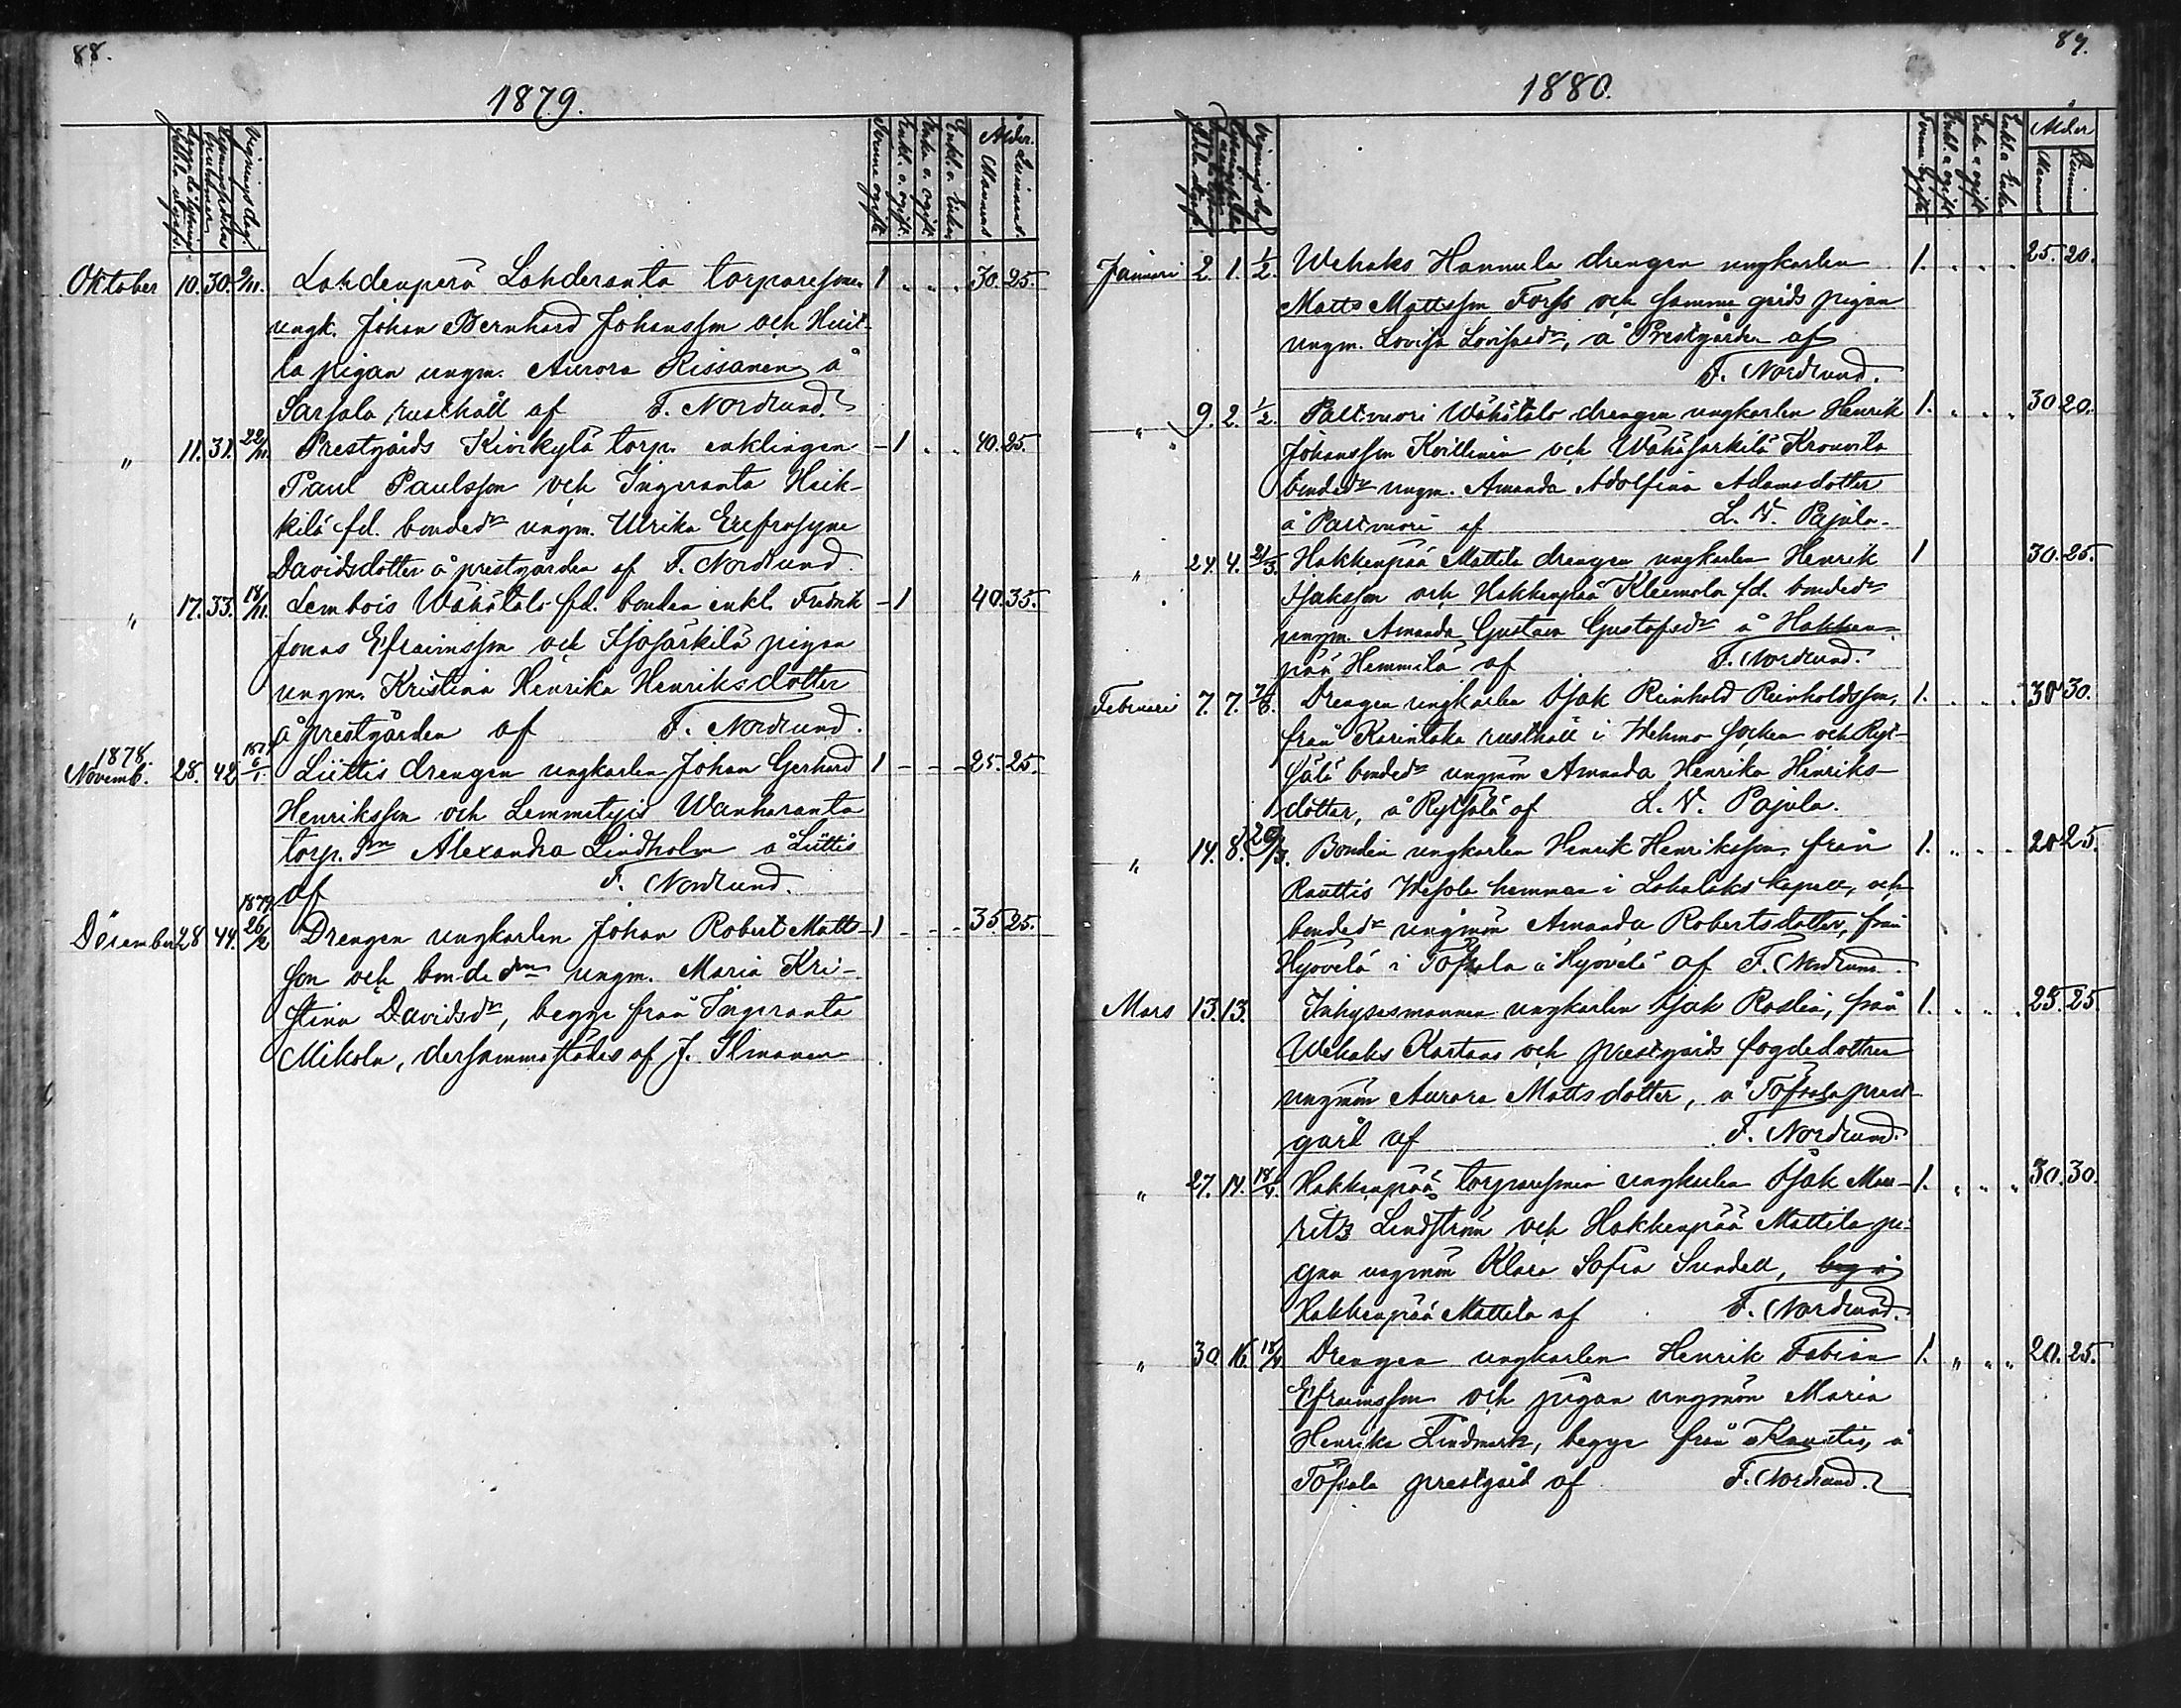 88.
1879.
Vigningsdag.
Förenne ogifte
Enkl. o. ogift.
Enka o. ogift.
Enkl. o. Enka
Ålder.
Mannens
Qvinnans
Oktober 10. 30. 9/11. Lahdenperä Lahderanta torparesonen 1 . . . 30. 25.
ungk. Johan Bernhard Johansson och Huit-
la pigan ungm. Aurora Rissanen å
Sarsala rusthåll af F. Nordlund.
" 11. 31. 22/11. Prestgårds Kivikylä torp. enklingen - 1 . . 40. 25.
Paul Paulsson och Ingeranta Heik-
kilä fd. bondedr ungm. Ulrika Eufrosyne
Davidsdotter å prestgården af F. Nordlund.
" 17. 33. 18/11. Lembois Wähätalo fd. bonden enkl. Fredrik - 1 40. 35.
Jonas Efraimsson och Isosärkilä pigan
ungm. Kristina Henrika Henriksdotter
å prestgården af F. Nordlund.
1878. 1879
Novemb. 28. 42 6/1. Liittis drengen ungkarlen Johan Gerhard 1 - - - 25. 25.
Henriksson och Lemmetyis Wanharanta
torp. drn Alexandra Lindholm å Liittis
af F. Nordlund.
1879
December 28 44. 26/2 Drengen ungkarlen Johan Robert Matts- 1 - - - 35. 25.
son och bonde drn ungm. Maria Kri-
stina Davidsdr, begge från Ingeranta
Mikola, dersammastädes af J. Ilmanen
89.
1880.
Vigningsdag
Enkl. o ogift
Enka o ogift
Enkl. o Enka
Ålder
Mannens
Qvinnans
Januari 2. 1. 1/2. Wehaks Hannula drengen ungkarlen 1. . . . 25. 20.
Matts Mattsson Forss och samma gårds pigan
ungm. Lovisa Lovisaedr, å Prestgården af
F. Nordlund.
" 9. 2. 1/2. Pallivuori Wähätalo drengen ungkarlen Henrik 1. . . . 30 20.
Johansson Kvillinen och Wähäsärkilä Krouvila
bondedr ungm. Amanda Adolfina Adamsdotter
å Pallivuori af L. V. Pajula.
" 24. 4. 21/3. Hakkenpää Mattila drengen ungkarlen Henrik 1 30. 25.
Isaksson och Hakkenpää Kleemola fd. bondedr
ungm. Amanda Gustava Gustafsdr å Hakken-
pää Hemmilä af F. Nordlund.
Februari 7. 7. 7/3. Drengen ungkarlen Isak Reinhold Reinholdsson, 1. . . . 30 30.
från Karintaka rusthåll i Wehmo socken och Ryt-
sälä bondedr ungmön Amanda Henrika Henriks-
dotter, å Rytsälä af L. V. Pajula.
" 14. 8. 29/3. Bonden ungkarlen Henrik Henriksson från 1. . . . 20 25.
Rauttis Wesola hemman i Lokalaks kapell, och
bondedr ungmön Amanda Robertsdotter, från
Hyövelä i Töfsala å Hyövelä af F. Nordlund.
Mars 13. 13. Inhysesmannen ungkarlen Isak Roslin, från 1. . . . 25. 25
Wehaks Kartano och prestgårds fogdedottren
ungmön Aurora Mattsdotter, å Töfsala prest-
gård af F. Nordlund.
" 27. 14. 18/4. Hakkenpää torparesonen ungkarlen Isak Mau- 1. " " " 30. 30.
ritz Lindström och Hakkenpää Mattila pi-
gan ungmön Klara Sofia Sundell,
Hakkenpää Mattila af F. Nordlund.
" 30. 16. 18/4 Drengen ungkarlen Henrik Fabian 1. " " " 20. 25.
Efraimsson och pigan ungmön Maria
Henrika Lindmark, begge från Kaurtis, å
Töfsala prestgård af F. Nordlund.